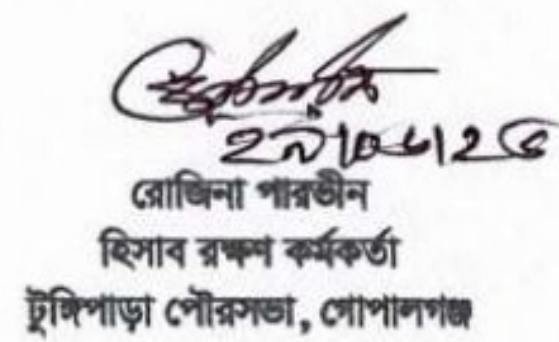 রোজিনা পারভীন
হিসাব রক্ষণ কর্মকর্তা
টুঙ্গিপাড়া পৌরসভা, গোপালগঞ্জ